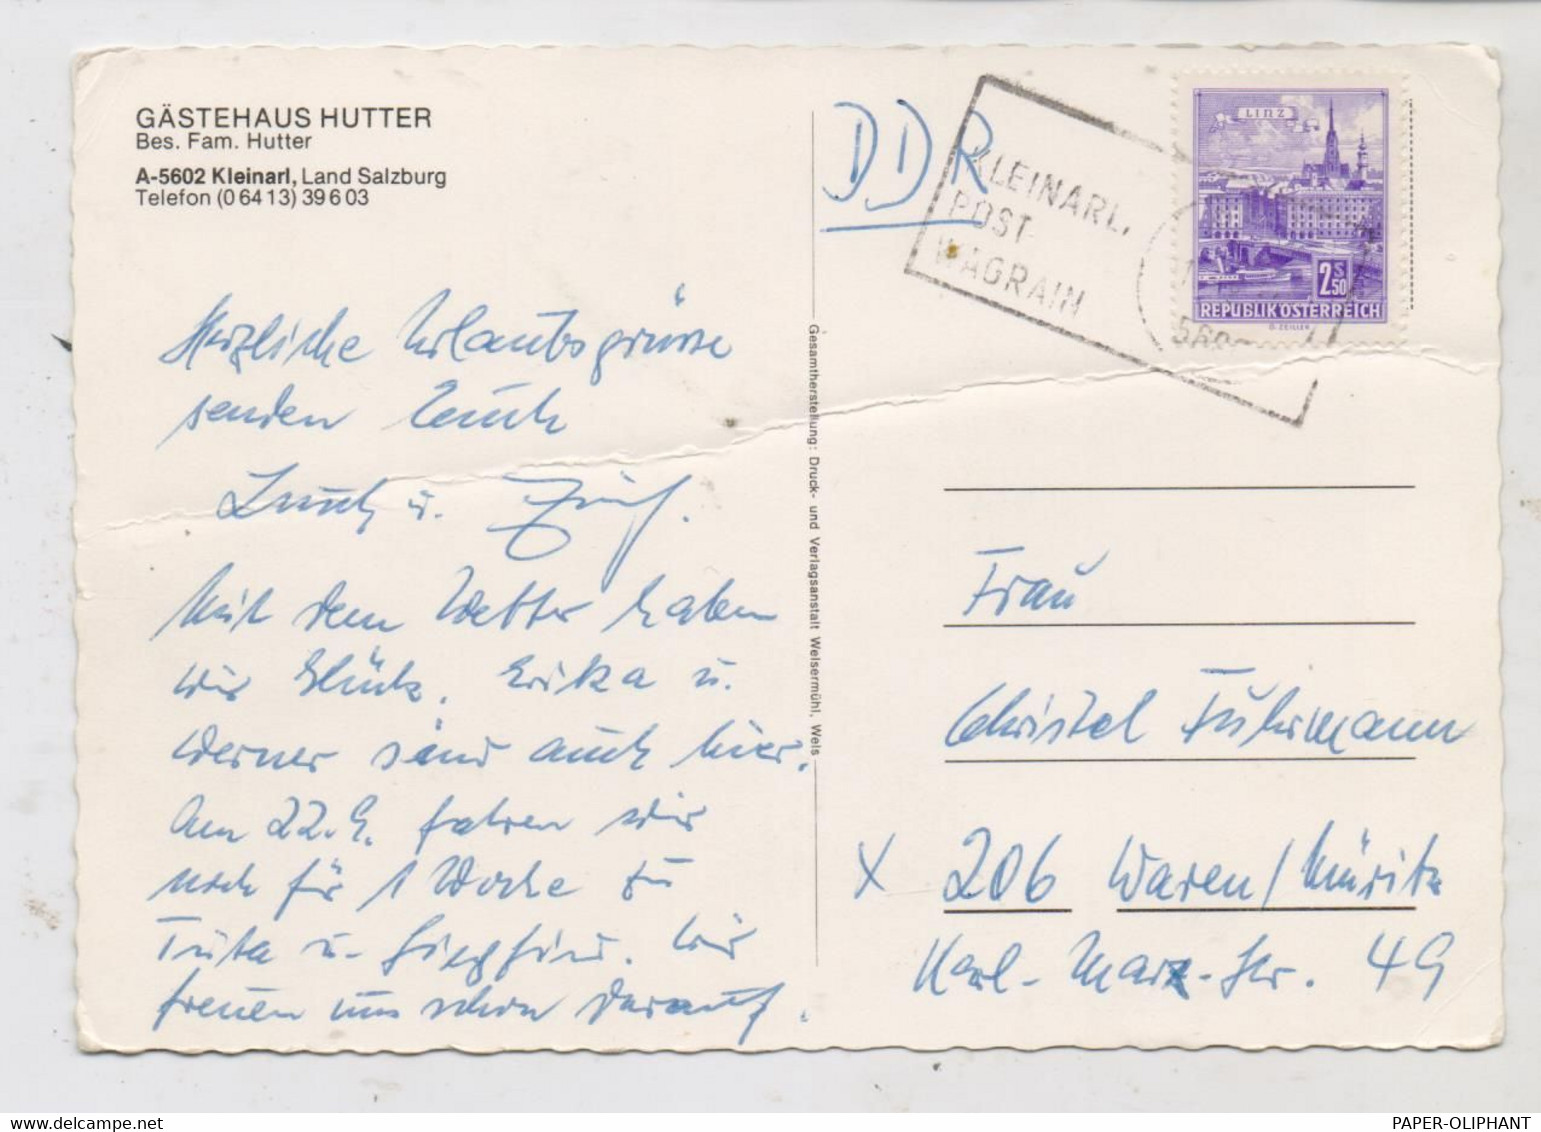 GÄSTEHAUS HUTTER
Bes. Fam. Hutter
A-5602 Kleinarl, Land Salzburg
Telefon (0 64 13) 39 6 03
Herzliche Urlaubsgrüsse
senden Euch
u.
Mit dem Wetter haben
wir Glück. Erika u.
Werner sind auch hier.
Am 22.9. fahren wir
noch für 1 Woche zu
Juta u. Siegfried. Wir
freuen uns schon darauf.
Gesamtherstellung: Druck- und Verlagsanstalt Welsermühl, Wels
DDR
KLEINARL,
POST
WAGRAIN
LINZ
2 S 50
REPUBLIK ÖSTERREICH
O. ZEILLER
Frau
Christel Fuhrmann
X 206 Waren/Müritz
Karl-Marx-Str. 49
PAPER-OLIPHANT